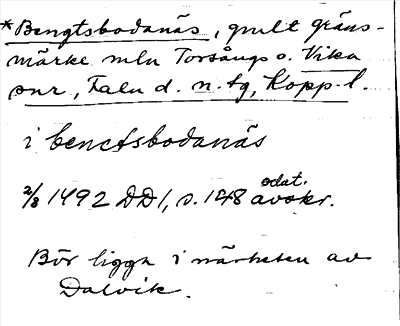 *Bengtsbodanäs, gmlt gräns-
märke mln Torsångs o. Vika
snr, Falu d. n. tg, Kopp. l.
i benctsbodanäs
2/8 1492 DD1, s. 148 odat. avskr.
Bör ligga i närheten av
Dalvik.